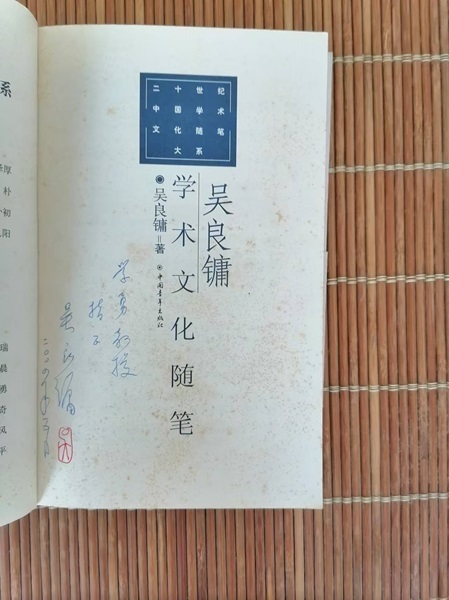 系
厚
朴
初
阳
瑞
晨
勇
奇
凤
平
二十世纪
中国学术
文化随笔
大系
吴良镛
学术文化随笔
吴良镛 著
中国青年出版社
教授
指正
吴良镛